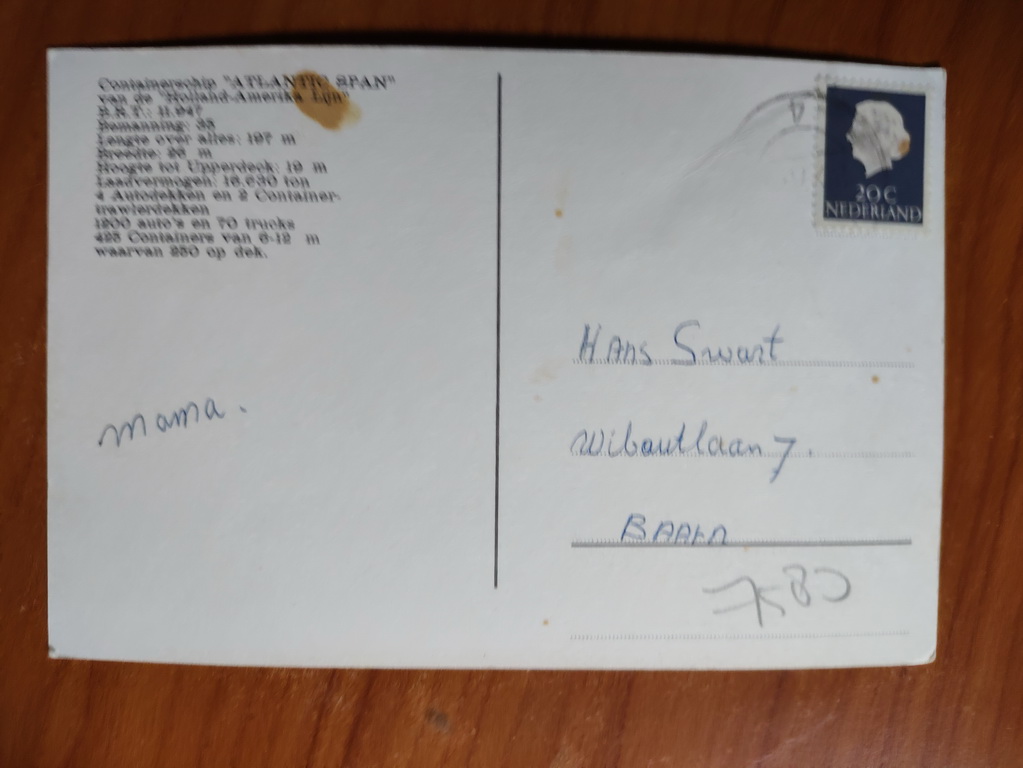 Containerschip "ATLANTIC SPAN"
van de "Holland-Amerika Lijn"
B.R.T.: 11.947
Bemanning: 35
Lengte over alles: 197 m
Breedte: 26 m
Hoogte tot Upperdeck: 19 m
Laadvermogen: 16.630 ton
4 Autodekken en 2 Container-
trawlerdekken
1200 auto's en 70 trucks
425 Containers van 6-12 m
waarvan 250 op dek.
mama.
20 C
NEDERLAND
Hans Swart
Wibautlaan 7.
BAARN